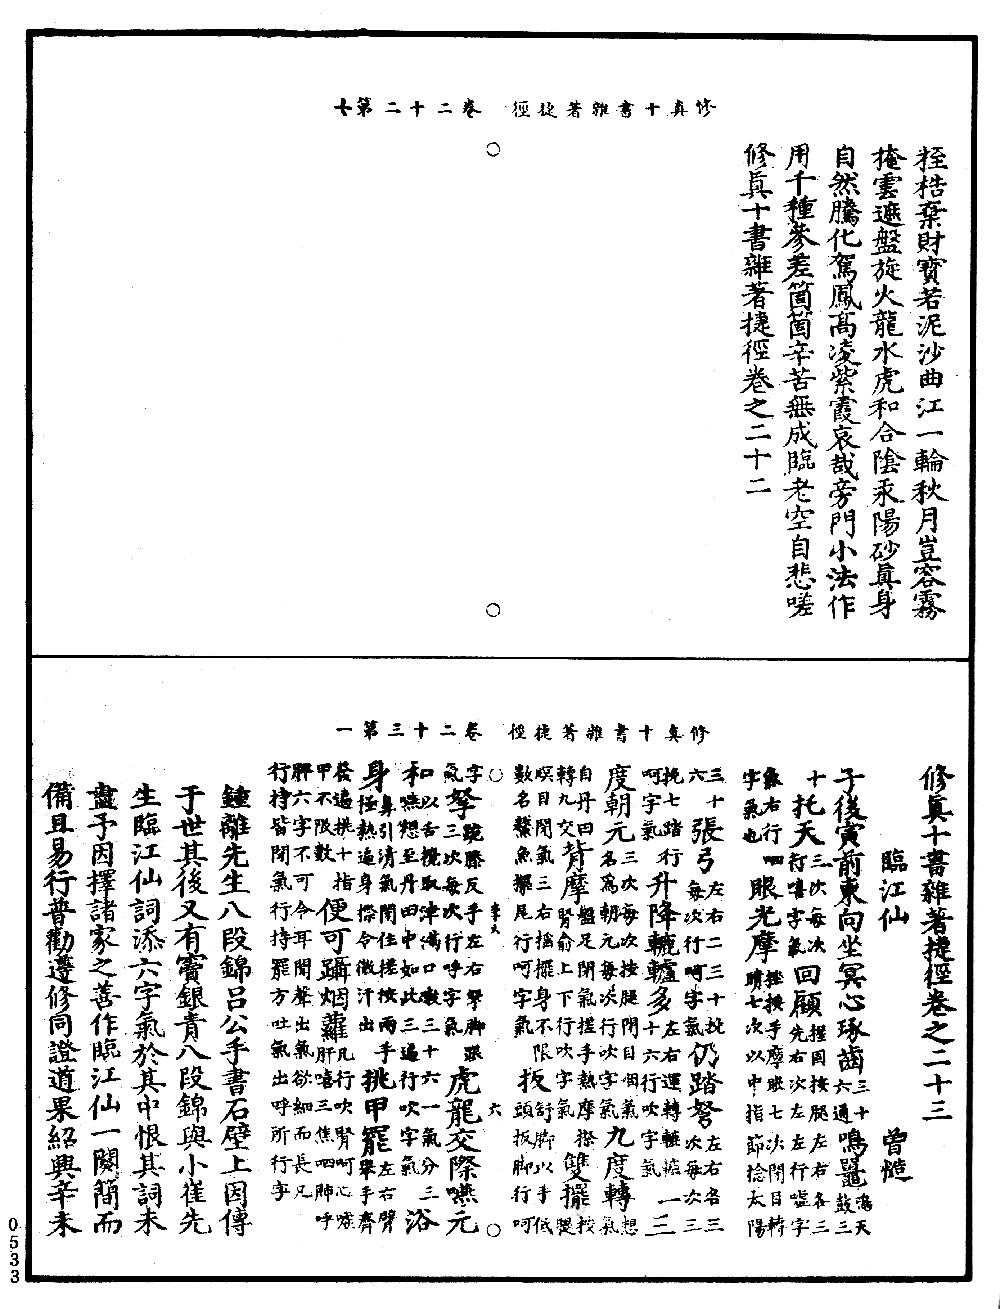 修真十書雜著捷徑　卷二十二第七
桎梏棄財寶若泥沙曲江一輪秋月豈容霧
掩雲遮盤旋火龍水虎和合陰汞陽砂眞身
自然騰化駕鳳高凌紫霞哀哉旁門小法作
用千種參差箇箇辛苦無成臨老空自悲嗟
修眞十書雜著捷徑卷之二十二
修真十書雜著捷徑　卷二十三第一
修眞十書雜著捷徑卷之二十三
臨江仙　曾慥
子後寅前東向坐冥心琢齒三十六通鳴鼉鳴天鼓三
十托天三次每次行嘻字氣回顧握固按腿左右各三先右次左左行噓字
氣右行呬字氣也眼光摩挼摩手摩眼七次閉目轉睛七次以中指節捻太陽
三十六張弓左右二三十挽每次行呵字氣仍踏弩左右各三次每次三
挽七踏行呵字氣升降轆轤多左右運轉轆轤三十六行吹字氣一三
度朝元三次每次按腿閉目個氣名爲朝元每次行吹字氣九度轉想氣
自丹田轉九交盤足閉氣搓手熱摩擦腎俞上下行吹字氣背摩雙擺按腿
瞑目閉氣三右搖擺身不限數名鰲魚擺尾行呵字氣扳舒脚以手低頭扳脚行呵
字氣弩跪膝反手左右拏脚跟三次每次行呼字氣虎龍交際嚥元
和以舌攪取津滿口漱三十六一氣分三嚥想至丹田中如此三遍行吹字氣浴
身鼻引清氣閉住搓按兩手極熱遍身擦令微汗出挑甲罷左右臂舉手齊
發遍挑十指甲不限數便可躡烟蘿凡行吹腎呵心噓肝嘻三焦呬肺呼
脾六字不可令耳聞聲出氣欲細而長凡行持皆閉氣行持罷方吐氣出呼所行字
鍾離先生八段錦吕公手書石壁上因傳
于世其後又有竇銀青八段錦與小崔先
生臨江仙詞添六字氣於其中恨其詞未
盡予因擇諸家之善作臨江仙一闋簡而
備且易行普勸遵修同證道果紹興辛未
0533